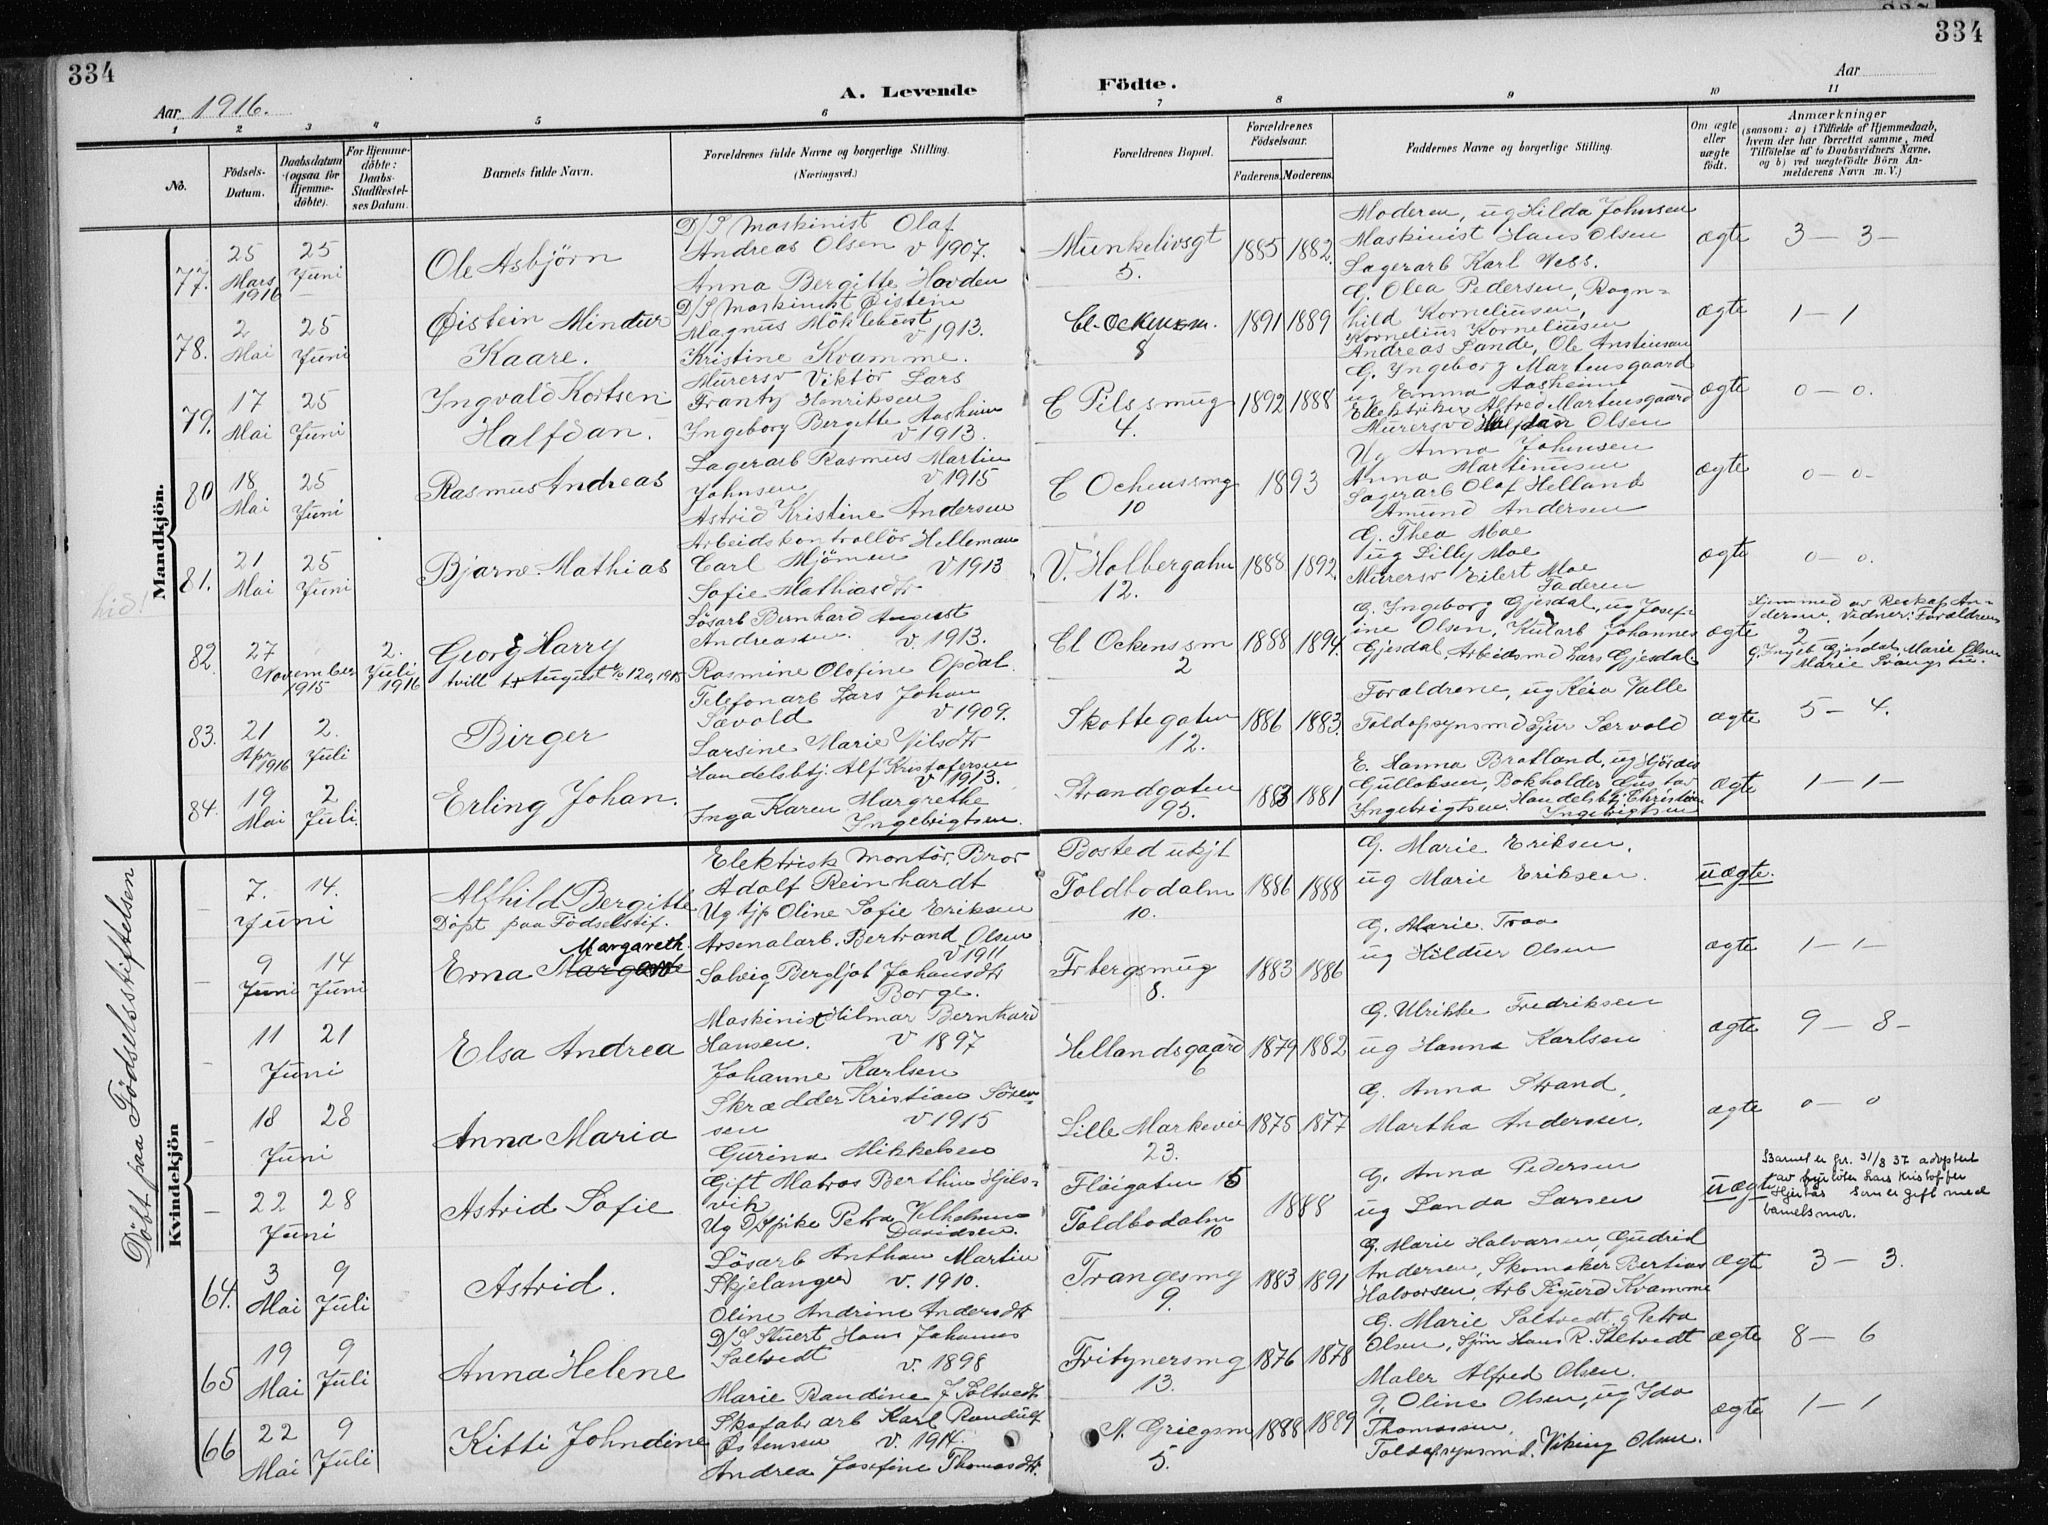 334
334
Aar 1916.
A. Levende
Födte.
Aar
1 2 3 4 5 6 7 8 9 10 11
No.
Födsels-Datum.
Daabsdatum (ogsaa for Hjemme-döbte).
For Hjemme-döbte: Daabs-Stadfæstelses Datum.
Barnets fulde Navn.
Forældrenes fulde Navne og borgerlige Stilling. (Næringsvei.)
Forældrenes Bopæl.
Forældrenes Födselsaar.
Faderens. Moderens.
Faddernes Navne og borgerlige Stilling.
Om ægte eller uægte födt.
Anmærkninger
(saasom: a) i Tilfælde af Hjemmedaab, hvem der har forrettet samme, med Tilföielse af to Daabsvidners Navne, og b) ved uægtefödte Börn Anmelderens Navn m. V.)
Mandkjön.
77. 25 Mars 1916 25 Juni
Ole Asbjörn
D/S Maskinist Olaf
Andreas Olsen v 1907.
Anna Bergitte Hovden
Munkelivsgt 5. 1885 1882.
Moderen, ug Hilda Johnsen
Maskinist Hans Olsen
Lagerarb Karl Ness.
ægte 3 — 3 —
78. 2 Mai 25 Juni
Øistein Mindur
Kaare.
D/S Maskinist Øistein
Magnus Möklebust v 1913.
Kristine Kvamme.
Cl. Ockensm. 8 1891 1889
G. Olea Pedersen, Ragn=
hild Korneliusen,
Kornelius Korneliussen
Andreas Sande, Ole
ægte 1 — 1
79. 17 Mai 25 Juni
Ingvald Kortsen
Halfdan.
Murersv Viktor Lars
Frantz Henriksen
Ingeborg Bergitte Aasheim
v 1913.
C Pilssmug 4. 1892 1888
G. Ingeborg Martensgaard
ug Emma Aasheim
Elektriker Alfred Martensgaard
Murersv Halfdan Olsen
ægte 0 — 0.
80 18 Mai 25 Juni
Rasmus Andreas
Lagerarb Rasmus Martin
Johnsen v 1915
Astrid Kristine Andersen
C Ockenssmg 10 1893
Ug Anna Johnsen
Anna Martinusen
Lagerarb Olaf Helland
Amund Andersen
ægte 0 — 0 —
81. 21 Mai 25 Juni
Bjarne Mathias
Arbeidskontrollör Helleman
Carl Mjömen v 1913
Sofie Mathiasdtr
V. Holbergalm 12. 1888 1892.
G. Thea Moe
ug Lilly Moe
Murersv Eilert Moe
Faderen
ægte 0 — 0.
82. 27 November 1915 2. Juli 1916
Georg Harry
tvill t August 120, 1915
Lösarb Bernhard August
Andreassen. v. 1913.
Rasmine Olafine Opdal.
Cl Ockenssm 2 1888 1894.
G. Ingeborg Gjesdal, ug Josef=
ine Olsen, Kularb Johannes
Gjesdal, Arbeidsmd Lars Gjesdal.
ægte
Hjemmed av Reskap An=
dersen, Vidner: Forældrene
2 1
G. Ingeb Gjesdal, Marie Olsen
83. 21 Apr 1916 2. Juli
Birger
Telefonarb Lars Johan
Sævold v 1909.
Larsine Marie Nilsdtr
Skottegaten 12. 1886 1883.
Forældrene, ug Keia Valle
Toldopsynsmd Sjur Særvold
ægte 5 — 4.
84. 19 Mai 2 Juli.
Erling Johan.
Handelsbtj. Alf Kristofersen
v 1913.
Inga Karen Margrethe
Ingebrigtsen.
Strandgaten 95. 1883 1881
E. Hanna Bratland, ug Hjördis
Gulloksen, Bokholder Gustav
Ingebrigtsen. Handelsbtj. Christian
Ingebrigtsen
ægte 1 — 1 —
Döbt paa Födselsstiftelsen
Kvindekjön
7. 14. Juni
Alfhild Bergitte
Döpt paa Födselstif.
Elektrisk montör, Bror
Adolf Reinhardt
Ug tjp Oline Sofie Eriksen
Bosted ukjt
Toldbodalm 10. 1886 1888
G. Marie Eriksen,
ug Marie Eriksen.
uægte.
9 Juni 14 Juni
Erna Margareth.
Arsenalarb. Bertrand Olsen
v 1911
Solveig Bergljot Johansdtr
Borge.
Frbergsmug 8. 1883 1886
G. Marie Traa
ug Hildur Olsen
ægte 1 — 1 —
11 21 Juni
Elsa Andrea
Maskinist Hilmar Bernhard
Hansen. v 1897
Johanne Karlsen
Hellandsgaard 6 1879 1882
G. Ulrikke Fredriksen
ug Hanna Karlsen
ægte 9 — 8 —
18 28 Juni
Anna Maria
Skrædder Kristian Sören=
sen v 1915
Gurina Mikkelsen
Lille Markevei 23. 1875 1877
G. Anna Strand,
Martha Andersen.
ægte 0 — 0
22 28 Juni
Astrid Sofie
Gift Matros Berthin Hjels=
vik
Ug D/Spike Petra Vilhelmine
Davidsen.
Flöigaten 15
Toldbodalm 10 1888
G. Anna Pedersen
ug Landa Larsen
uægte
Barnet er gr. 31/8 37 adoptert
av fyrbøter Lars Kristoffer
Hjertås som er gift med
barnets mor.
64. 3 Mai 9 Juli
Astrid.
Lösarb Anthon Martin
Skjelanger v. 1910.
Oline Andrine Andersdtr
Trangesmg 9. 1883 1891
G. Marie Halvorsen, Gudrid
Andersen, Skomaker Bertius
Halvorsen, Arb Sigurd Kvamme
ægte 3 — 3.
65 19 Mai 9 Juli
Anna Helene
D/S Stuert Hans Johannes
Saltvedt v. 1898
Marie Randine J Saltvedt
Fritznersmg 13. 1876 1878
G. Marie Saltvedt, g Petra
Olsen, Sjm Hans R. Saltvedt
Maler Alfred Olsen.
ægte 8 — 6
66 22 Mai 9 Juli
Kitti Johndine
Skofabr arb Karl Randulf
Östensen v. 1914.
Andrea Josefine Thomasdtr.
N. Griegsm 5. 1888 1889
g. Oline Olsen, ug Ida
Thomassen,
Toldopsynsmd. Viking Olsen.
ægte 1 — 1